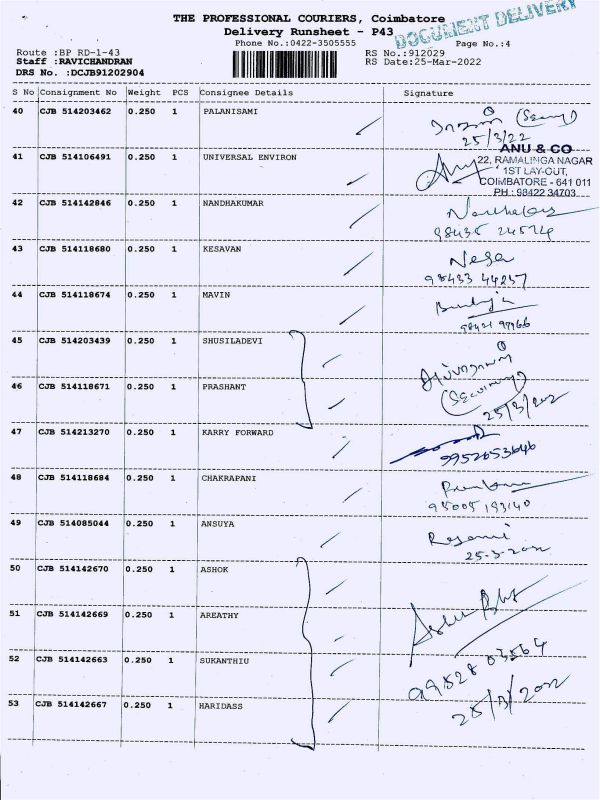 THE PROFESSIONAL COURIERS, Coimbatore
Delivery Runsheet - P43
DOCUMENT DELIVERY
Phone No.:0422-3505555 Page No.:4
Route :BP RD-1-43 RS No.:912029
Staff :RAVICHANDRAN RS Date:25-Mar-2022
DRS No. :DCJB91202904
S No Consignment No Weight PCS Consignee Details Signature
40 CJB 514203462 0.250 1 PALANISAMI
25/3/22
41 CJB 514106491 0.250 1 UNIVERSAL ENVIRON
ANU & CO
22, RAMALINGA NAGAR
1ST LAY-OUT,
COIMBATORE - 641 011
PH : 98422 34703
42 CJB 514142846 0.250 1 NANDHAKUMAR
43 CJB 514118680 0.250 1 KESAVAN
98433 44257
44 CJB 514118674 0.250 1 MAVIN
45 CJB 514203439 0.250 1 SHUSILADEVI
46 CJB 514118671 0.250 1 PRASHANT
47 CJB 514213270 0.250 1 KARRY FORWARD
9952653646
48 CJB 514118684 0.250 1 CHAKRAPANI
49 CJB 514085044 0.250 1 ANSUYA
50 CJB 514142670 0.250 1 ASHOK
51 CJB 514142669 0.250 1 AREATHY
52 CJB 514142663 0.250 1 SUKANTHIU
53 CJB 514142667 0.250 1 HARIDASS